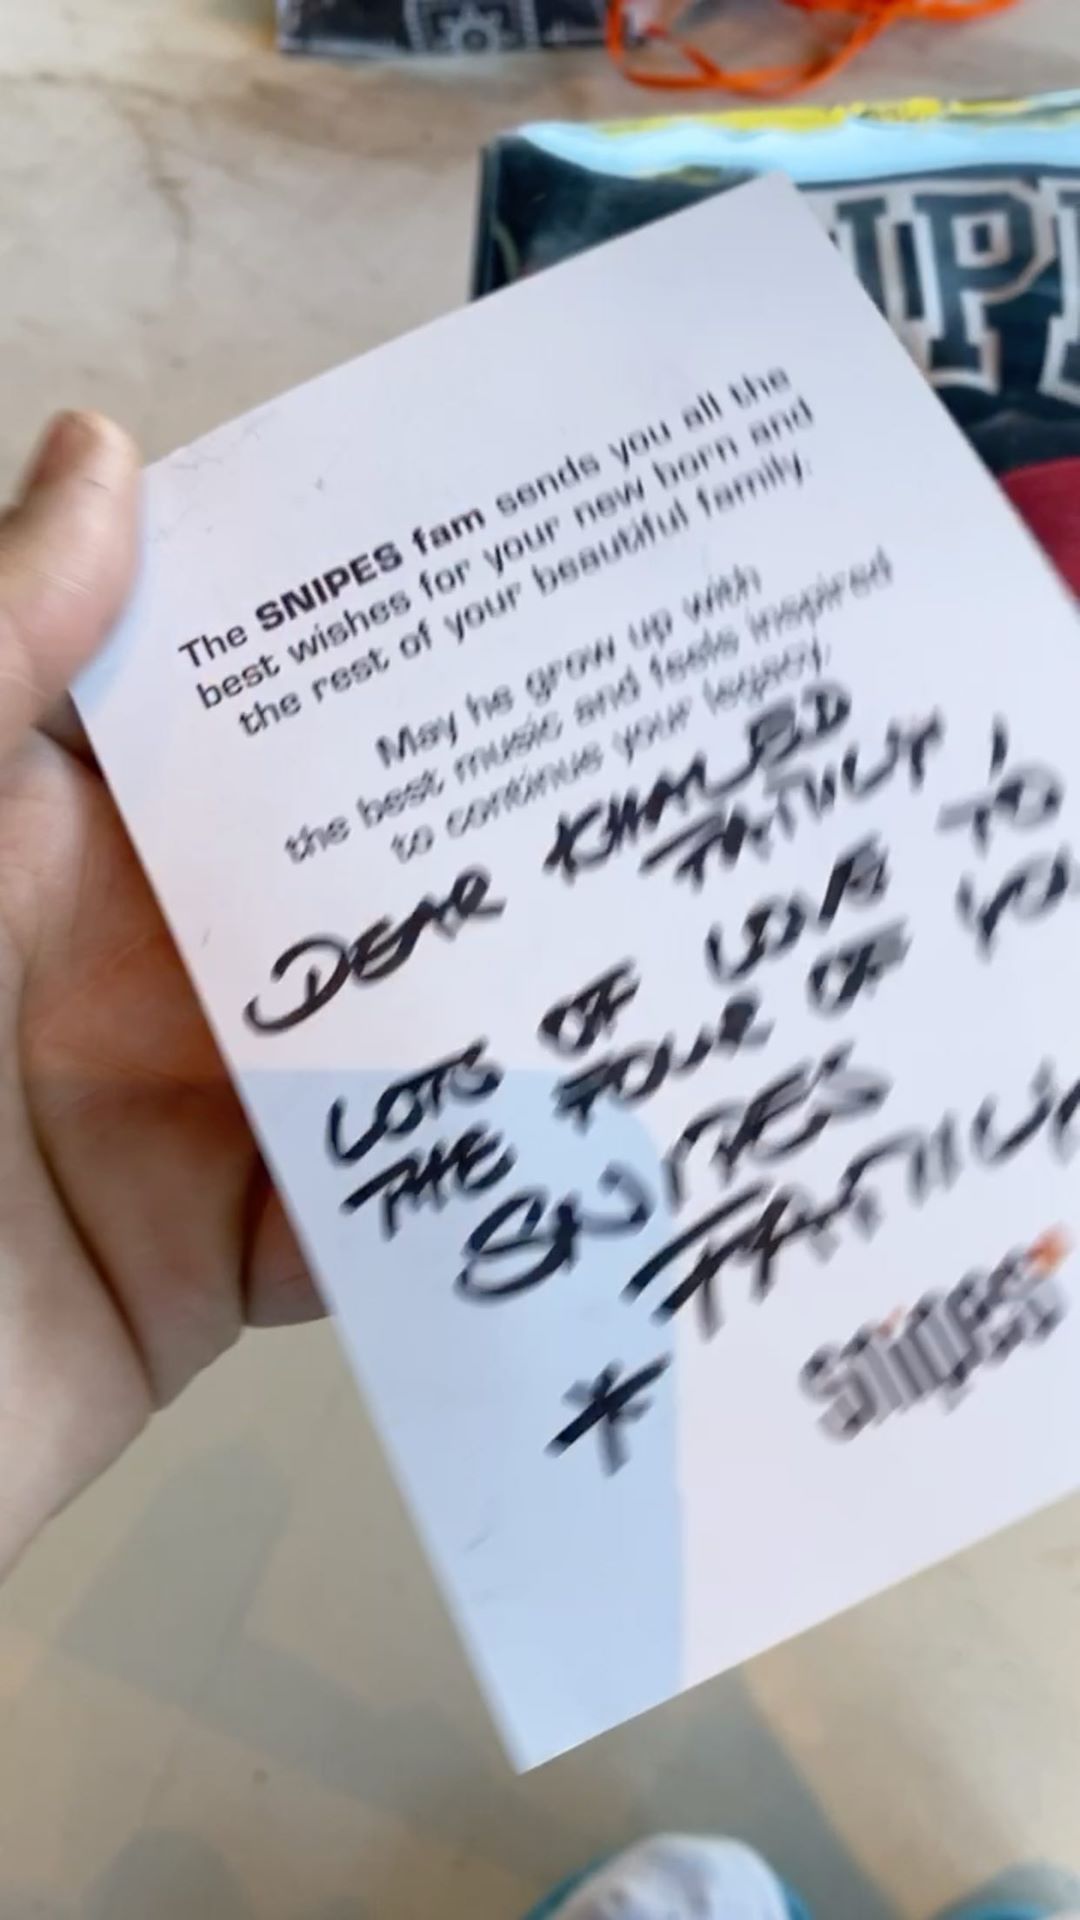 IP
The SNIPES fam sends you all the
best wishes for your new born and
the rest of your beautiful family.
May he grow up with
the best music and feels inspired
to continue your legacy.
DEAR KHALED
FAMILY,
LOTS OF LOVE TO
THE FOUR OF YOU
SNIPES
FAMILY
snipes